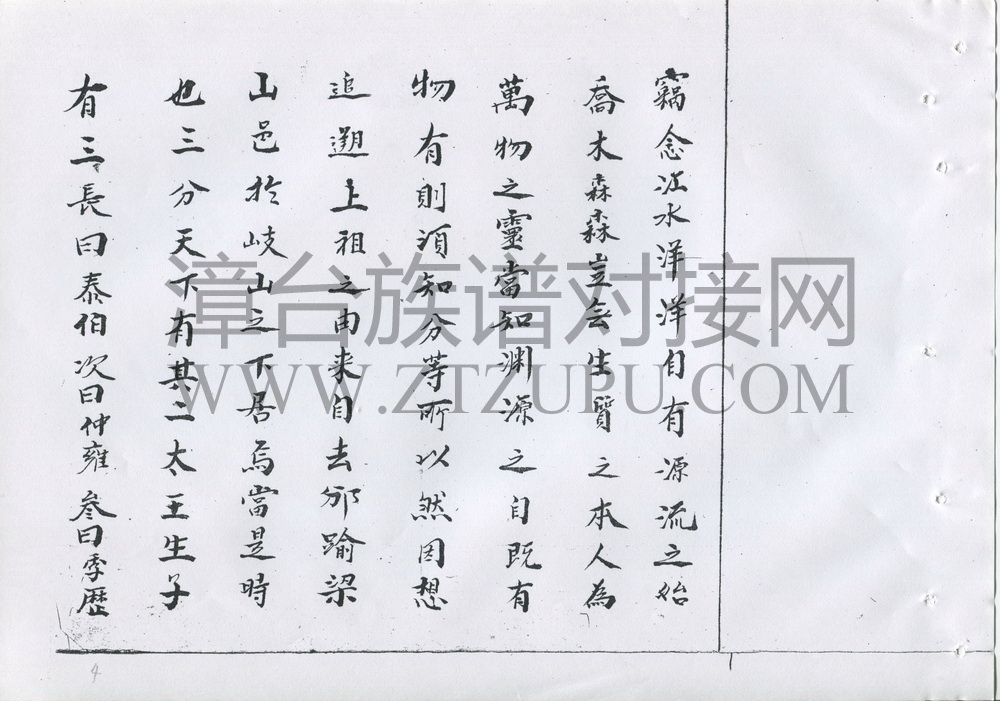 竊念江水洋洋自有源流之始
喬木森森豈無生質之本人為
萬物之靈當知渊源之自既有
物有則須知分等所以然因想
追遡上祖之由来自去邠踰梁
山邑於岐山之下居焉當是時
也三分天下有其二太王生子
有三長曰泰伯次曰仲雍叁曰季歴
漳台族谱对接网
WWW.ZTZUPU.COM
4